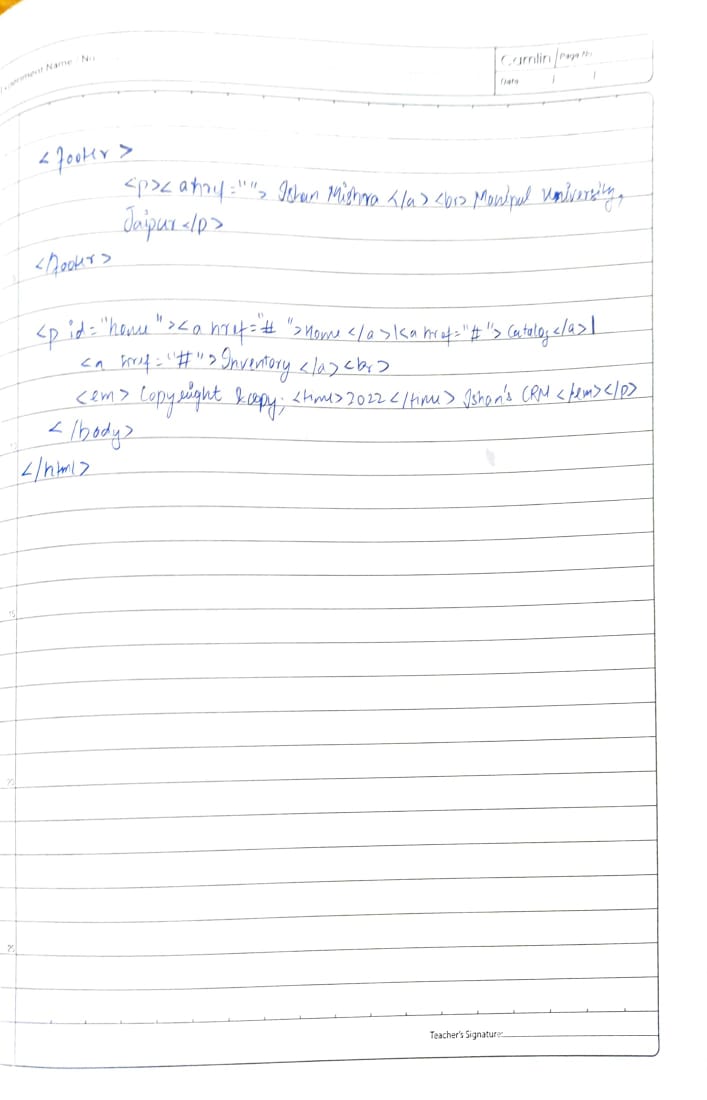 Experiment Name No.
Camlin Page No.
Date / /
<footer>
<p><a href=""> Ishan Mishra </a> <br> Manipal University,
Jaipur </p>
</footer>
<p id="home"><a href="#">Home </a>|<a href="#"> Catalog </a>|
<a href="#"> Inventory </a><br>
<em> Copyright &copy; <time>2022</time> Ishan's CRM </em></p>
</body>
</html>
15
20
25
Teacher's Signature: